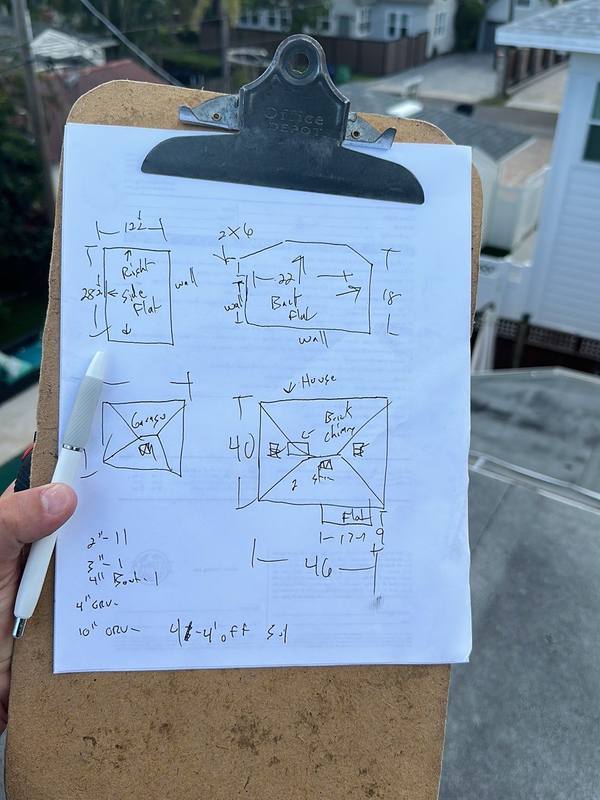 Office
DEPOT
12½
Right
Side
Flat
28½
wall
2x6
22
Back
Flat
wall
18
wall
Garage
House
Brick
Chimny
40
Flat
9
46
2"-11
3"-1
4" Boot-1
4" GRV-
10" GRV-
4'off